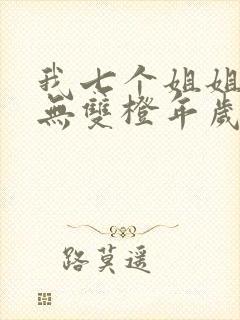 我七个姐姐
無雙橙年歲
路莫遥